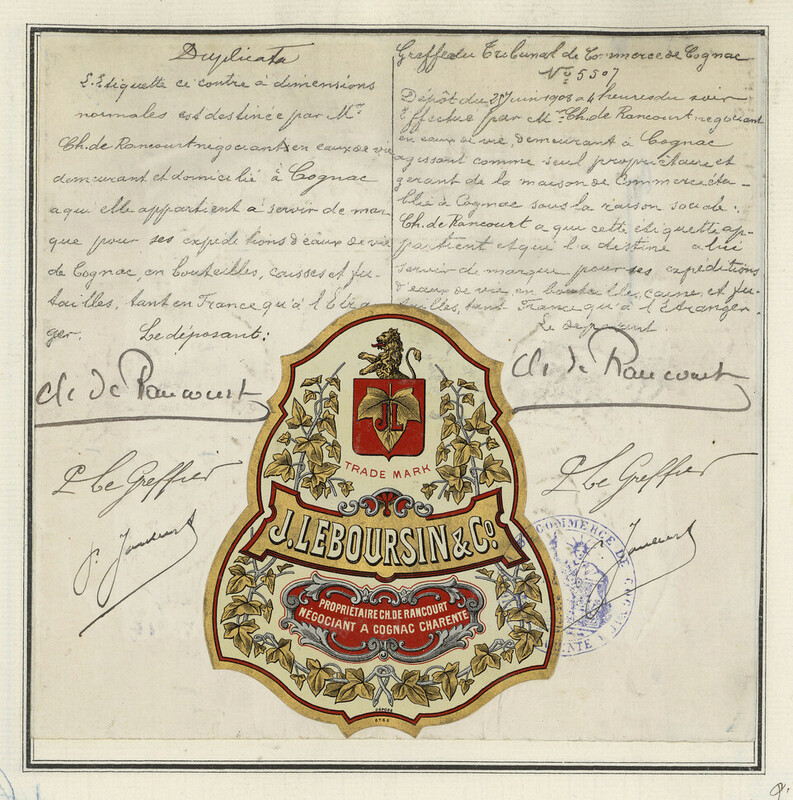 Duplicata
L'Etiquette ci contre à dimensions
normales est destinée par Mr
Ch. de Rancourt négociant en eaux de vie
demeurant et domicilié à Cognac
a qui elle appartient à servir de mar-
que pour ses expéditions d'eaux de vie
de Cognac, en bouteilles, caisses et fu-
tailles, tant en France qu'à l'Etran-
ger. Le déposant:
Ch de Rancourt
P Le Greffier
Greffe du Tribunal de Commerce de Cognac
No 5507
Dépôt du Juin 1908 à 4 heures du soir
Effectué par Mr Ch. de Rancourt négociant
en eaux de vie, demeurant à Cognac
agissant comme seul propriétaire et
gérant de la maison de Commerce éta-
blie à Cognac sous la raison sociale:
Ch. de Rancourt a qui cette étiquette ap-
partient et qui l'a destine a lui
servir de marque pour ses expéditions
d'eaux de vie, en bouteilles, caisse, et fu-
tailles, tant France qu'à l'Etranger.
Le déposant
Ch de Rancourt
P Le Greffier
JL
TRADE MARK
J. LEBOURSIN & Co.
PROPRIÉTAIRE CH. DE RANCOURT
NÉGOCIANT A COGNAC CHARENTE
DÉPOSÉ
COMMERCE DE COGNAC